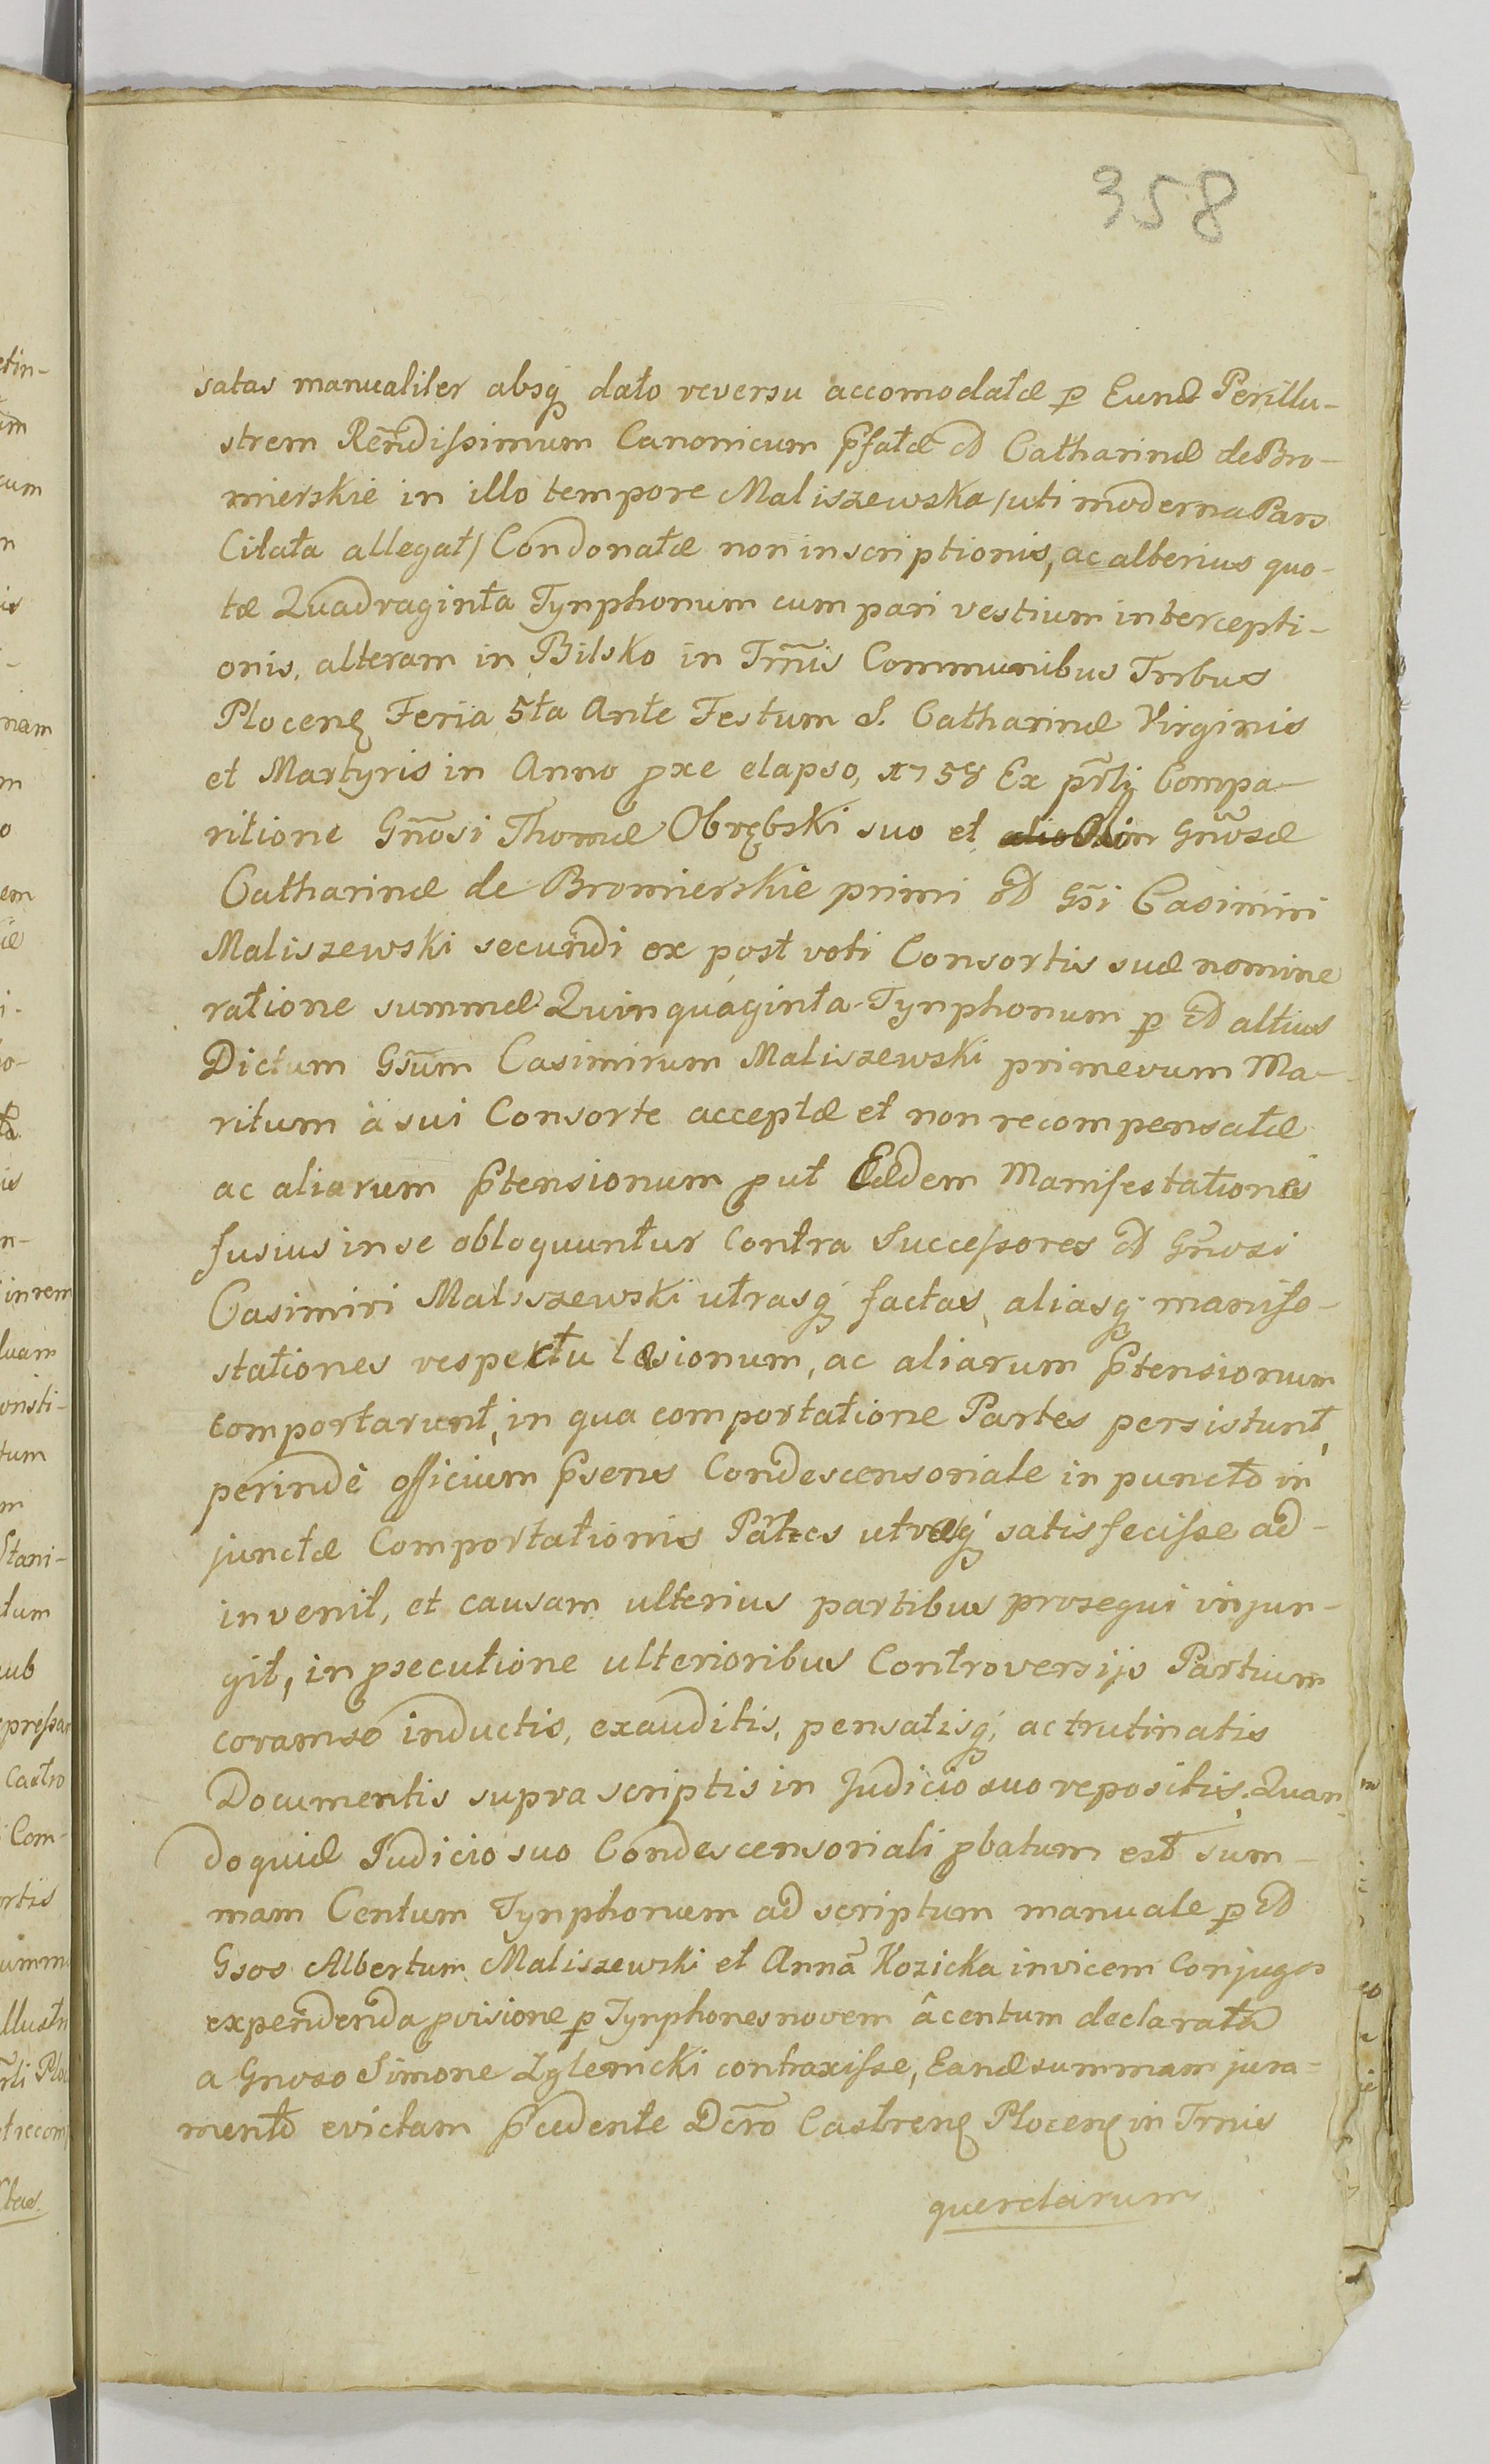 358
satas manualiter absq dato reversu accomodatæ p Eund Perillu-
strem Rendissimum Canonicum p̃fatæ od Catharinæ de Bro-
mierskie in illo tempore Maliszewska /uti moderna Pars
Citata allegat/ Condonatæ non inscriptionis, ac alterius quo-
tæ Quadraginta Tynphonum cum pari vestium intercepti-
onis, alteram in Bilsko in Trñis Communibus Trrbus
Plocen Feria 5ta Ante Festum S. Catharinæ Virginis
et Martyris in Anno pxe elapso, 1758 Ex pr̃li Compa-
ritione Gñosi Thomæ Obrębski suo et olim Gñosæ
Catharinæ de Bromierskie primi od Gsi Casimiri
Maliszewski secundi ex post voti Consortis suæ nomine
ratione summæ Quinquaginta Tynphonum p od altius
Dictum Gsum Casimirum Maliszewski primevum Ma-
ritum à sui Consorte acceptæ et non recompensatæ
ac aliarum p̃tensionum put Eædem Manifestationes
fusius in se obloquuntur Contra Successores od Gnosi
Casimiri Maliszewski utrasq factas, aliasq manife-
stationes respectu læsionum, ac aliarum p̃tensionum
comportarunt, in qua comportatione Partes persistunt,
perindè officium p̃sens Condescensoriale in puncto in
junctæ Comportationis Partes utrasq satisfecisse ad-
invenit, et causam ulterius partibus prosequi injun-
git, in psecutione ulterioribus Controversijs Partium
coram se inductis, exauditis, pensatisq, ac trutinatis
Documentis supra scriptis in Judicio suo repositis, Quan
doquid Judicio suo Condescensoriali pbatum est sum-
mam Centum Tynphonum ad scriptum manuale p od
Gsos Albertum Maliszewski et Annã Kozicka invicem Conjuges
expendenda pvisione p Tynphones novem â centum declarata
a Gnoso Simone Zglenicki contraxisse, Eand summam jura-
mento evictam p̃cedente Dcr̃o Castren Plocen in Trnis
querelarum